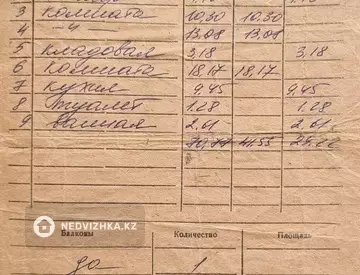 3 комната 10,30 10,30
4 -"- 13,08 13,08
5 кладовая 3,18 3,18
6 комната 18,17 18,17
7 кухня 9,45 9,45
8 туалет 1.28 1.28
9 ванная 2,61 2,61
41.55
NEDVIZHKA.KZ
Балконы Количество Площадь
да 1